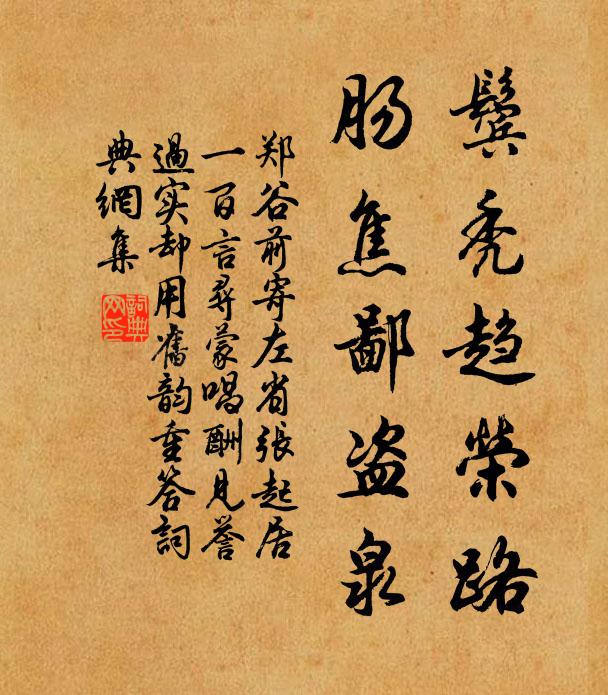 鬓秃趋荣路
肠焦鄙盗泉
郑谷前寄左省張起居
一百言尋蒙唱酬見誉
過实却用舊韵重答詞
典網集